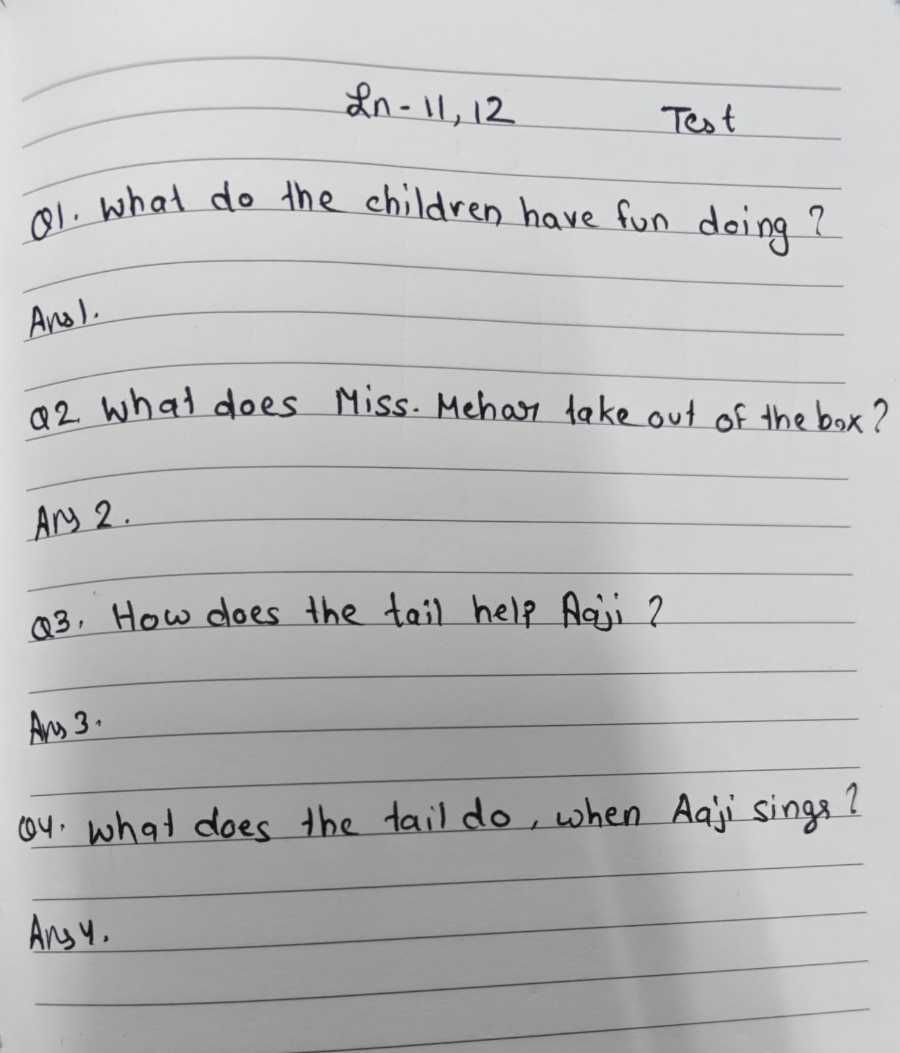 Ln - 11, 12 Test
Q1. What do the children have fun doing ?
Ans1.
Q2 What does Miss. Mehar take out of the box ?
Ans 2.
Q3. How does the tail help Aaji ?
Ans 3.
Q4. What does the tail do , when Aaji sings ?
Ans 4.